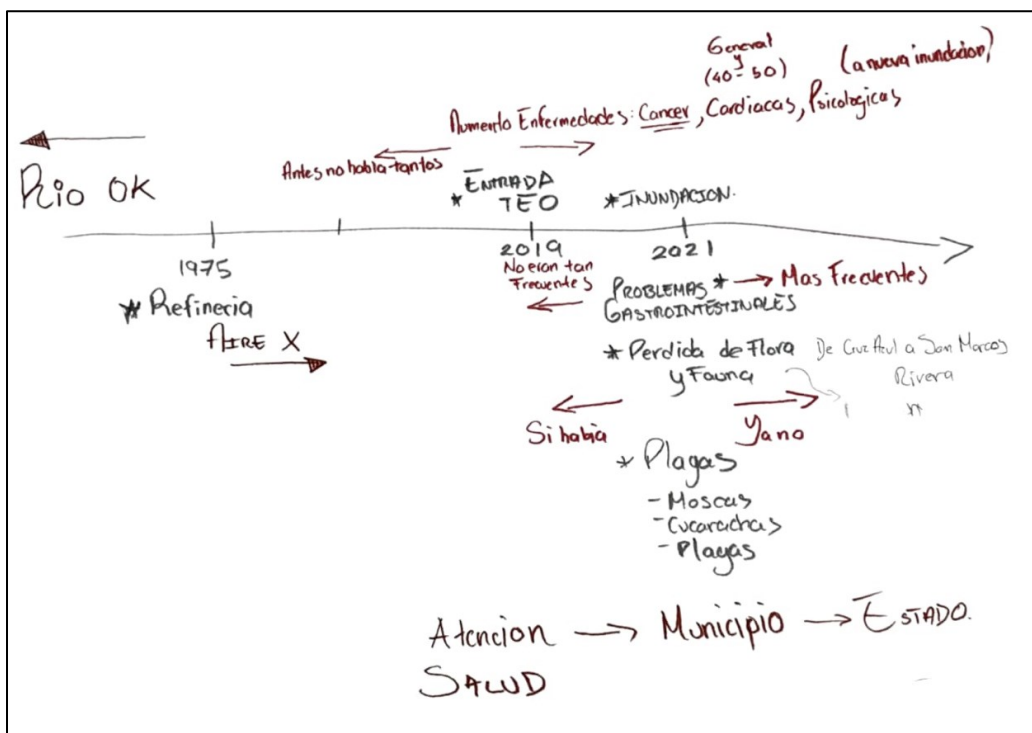 General
y
(40-50)
(a nueva inundacion)
Aumento Enfermedades: Cancer, Cardiacas, Psicologicas
Antes no habia tantos
Rio OK
* ENTRADA
TEO
* INUNDACION.
1975
2019
2021
* Refineria
AIRE X
No eran tan
Frecuentes
PROBLEMAS * → Mas Frecuentes
GASTROINTESTINALES
* Perdida de Flora
y Fauna
De Cruz Azul a San Marcos
Rivera
Si habia
Ya no
* Plagas
- Moscas
- Cucarachas
- Plagas
Atencion → Municipio → ESTADO.
SALUD